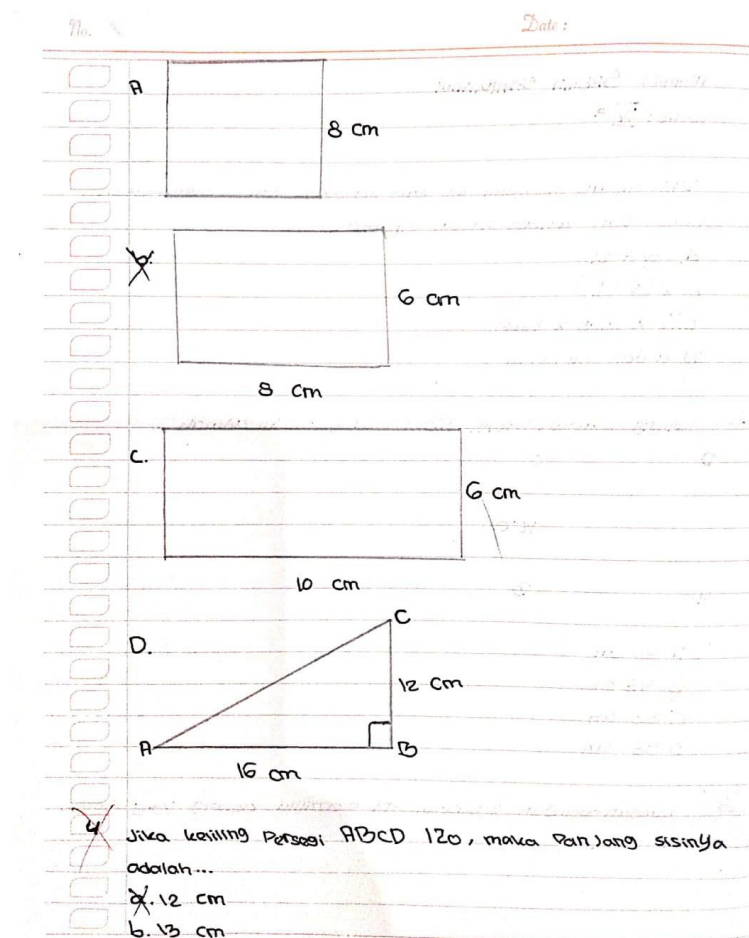 No.
Date :
A
8 cm
b.
6 cm
8 cm
C.
6 cm
10 cm
D.
C
12 cm
A
B
16 cm
4
Jika keliling Persegi ABCD 120, maka Panjang sisinya
adalah...
a. 12 cm
b. 13 cm